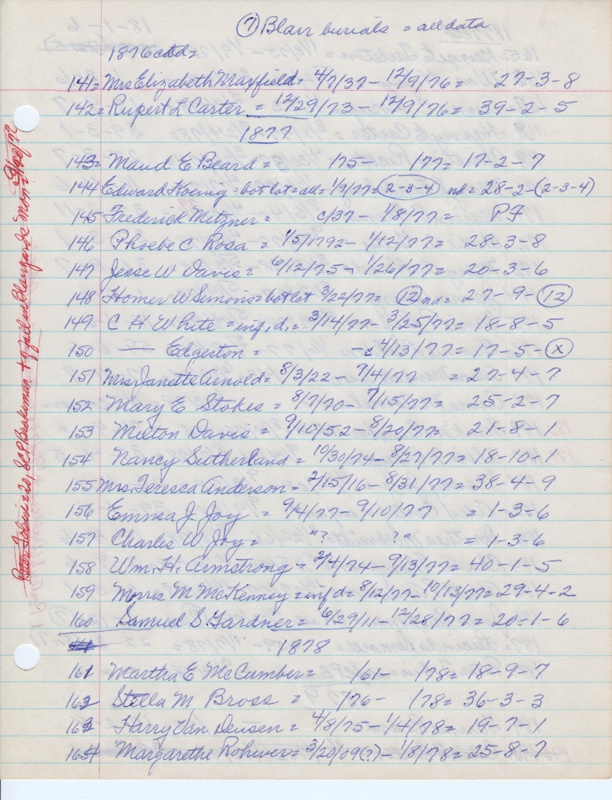 ⑦ Blair burials = all data
1876 ctd =
141 = Mrs Elizabeth Maxfield = 4/7/37 - 12/9/76 = 27-3-8
142 = Rupert L Carter = 12/29/73 - 12/9/76 = 39-2-5
1877
143 = Maud E Beard = /75 - /77 = 17-2-7
144 Edward Koenig = bot lot = all = 1/9/77 = (2-3-4) nd = 28-2-(2-3-4)
145 Frederick Metzner = c/37 - 1/8/77 = PF
146 Phoebe C Rosa = 1/5/1792 - 1/12/77 = 28-3-8
147 Jesse W Davis = 6/12/75 - 1/26/77 = 20-3-6
148 Homer W Simons = bot lot 3/22/77 = (12) = 27-9-(12)
149 C H White = inf, d, = 3/14/77 - 3/25/77 = 18-8-5
150 — Edgerton = - 4/13/77 = 17-5-(X)
151 Mrs Janette Arnold = 8/3/22 - 7/4/77 = 27-4-7
152 Mary E Stokes = 8/7/70 - 7/15/77 = 25-2-7
153 Milton Davis = 9/10/52 - 8/20/77 = 21-8-1
154 Nancy Sutherland = 10/30/74 - 8/27/77 = 18-10-1
155 Mrs. Teresca Anderson = 2/15/16 - 8/31/77 = 38-4-9
156 Emma J. Joy = 9/4/77 - 9/10/77 = 1-3-6
157 Charles W Joy = "? ?" = 1-3-6
158 Wm. H. Armstrong - 2/4/74 - 9/13/77 = 40-1-5
159 Morris M McKenney = inf d = 8/12/77 - 10/13/77 = 29-4-2
160 Samuel S. Gardner = 6/29/11 - 12/28/77 = 20-1-6
1878
161 Martha E McCumber = /61 - /78 = 18-9-7
162 Stella M Bross = /76 - /78 = 36-3-3
163 Harry Van Deusen = 4/8/75 - 1/4/78 = 19-7-1
164 Margarethe Rohwer = 3/20/09(?) - 1/8/78 = 25-8-7